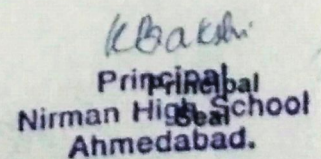 K Bakshi
Principal
Principal
Nirman High School
Seal
Ahmedabad.